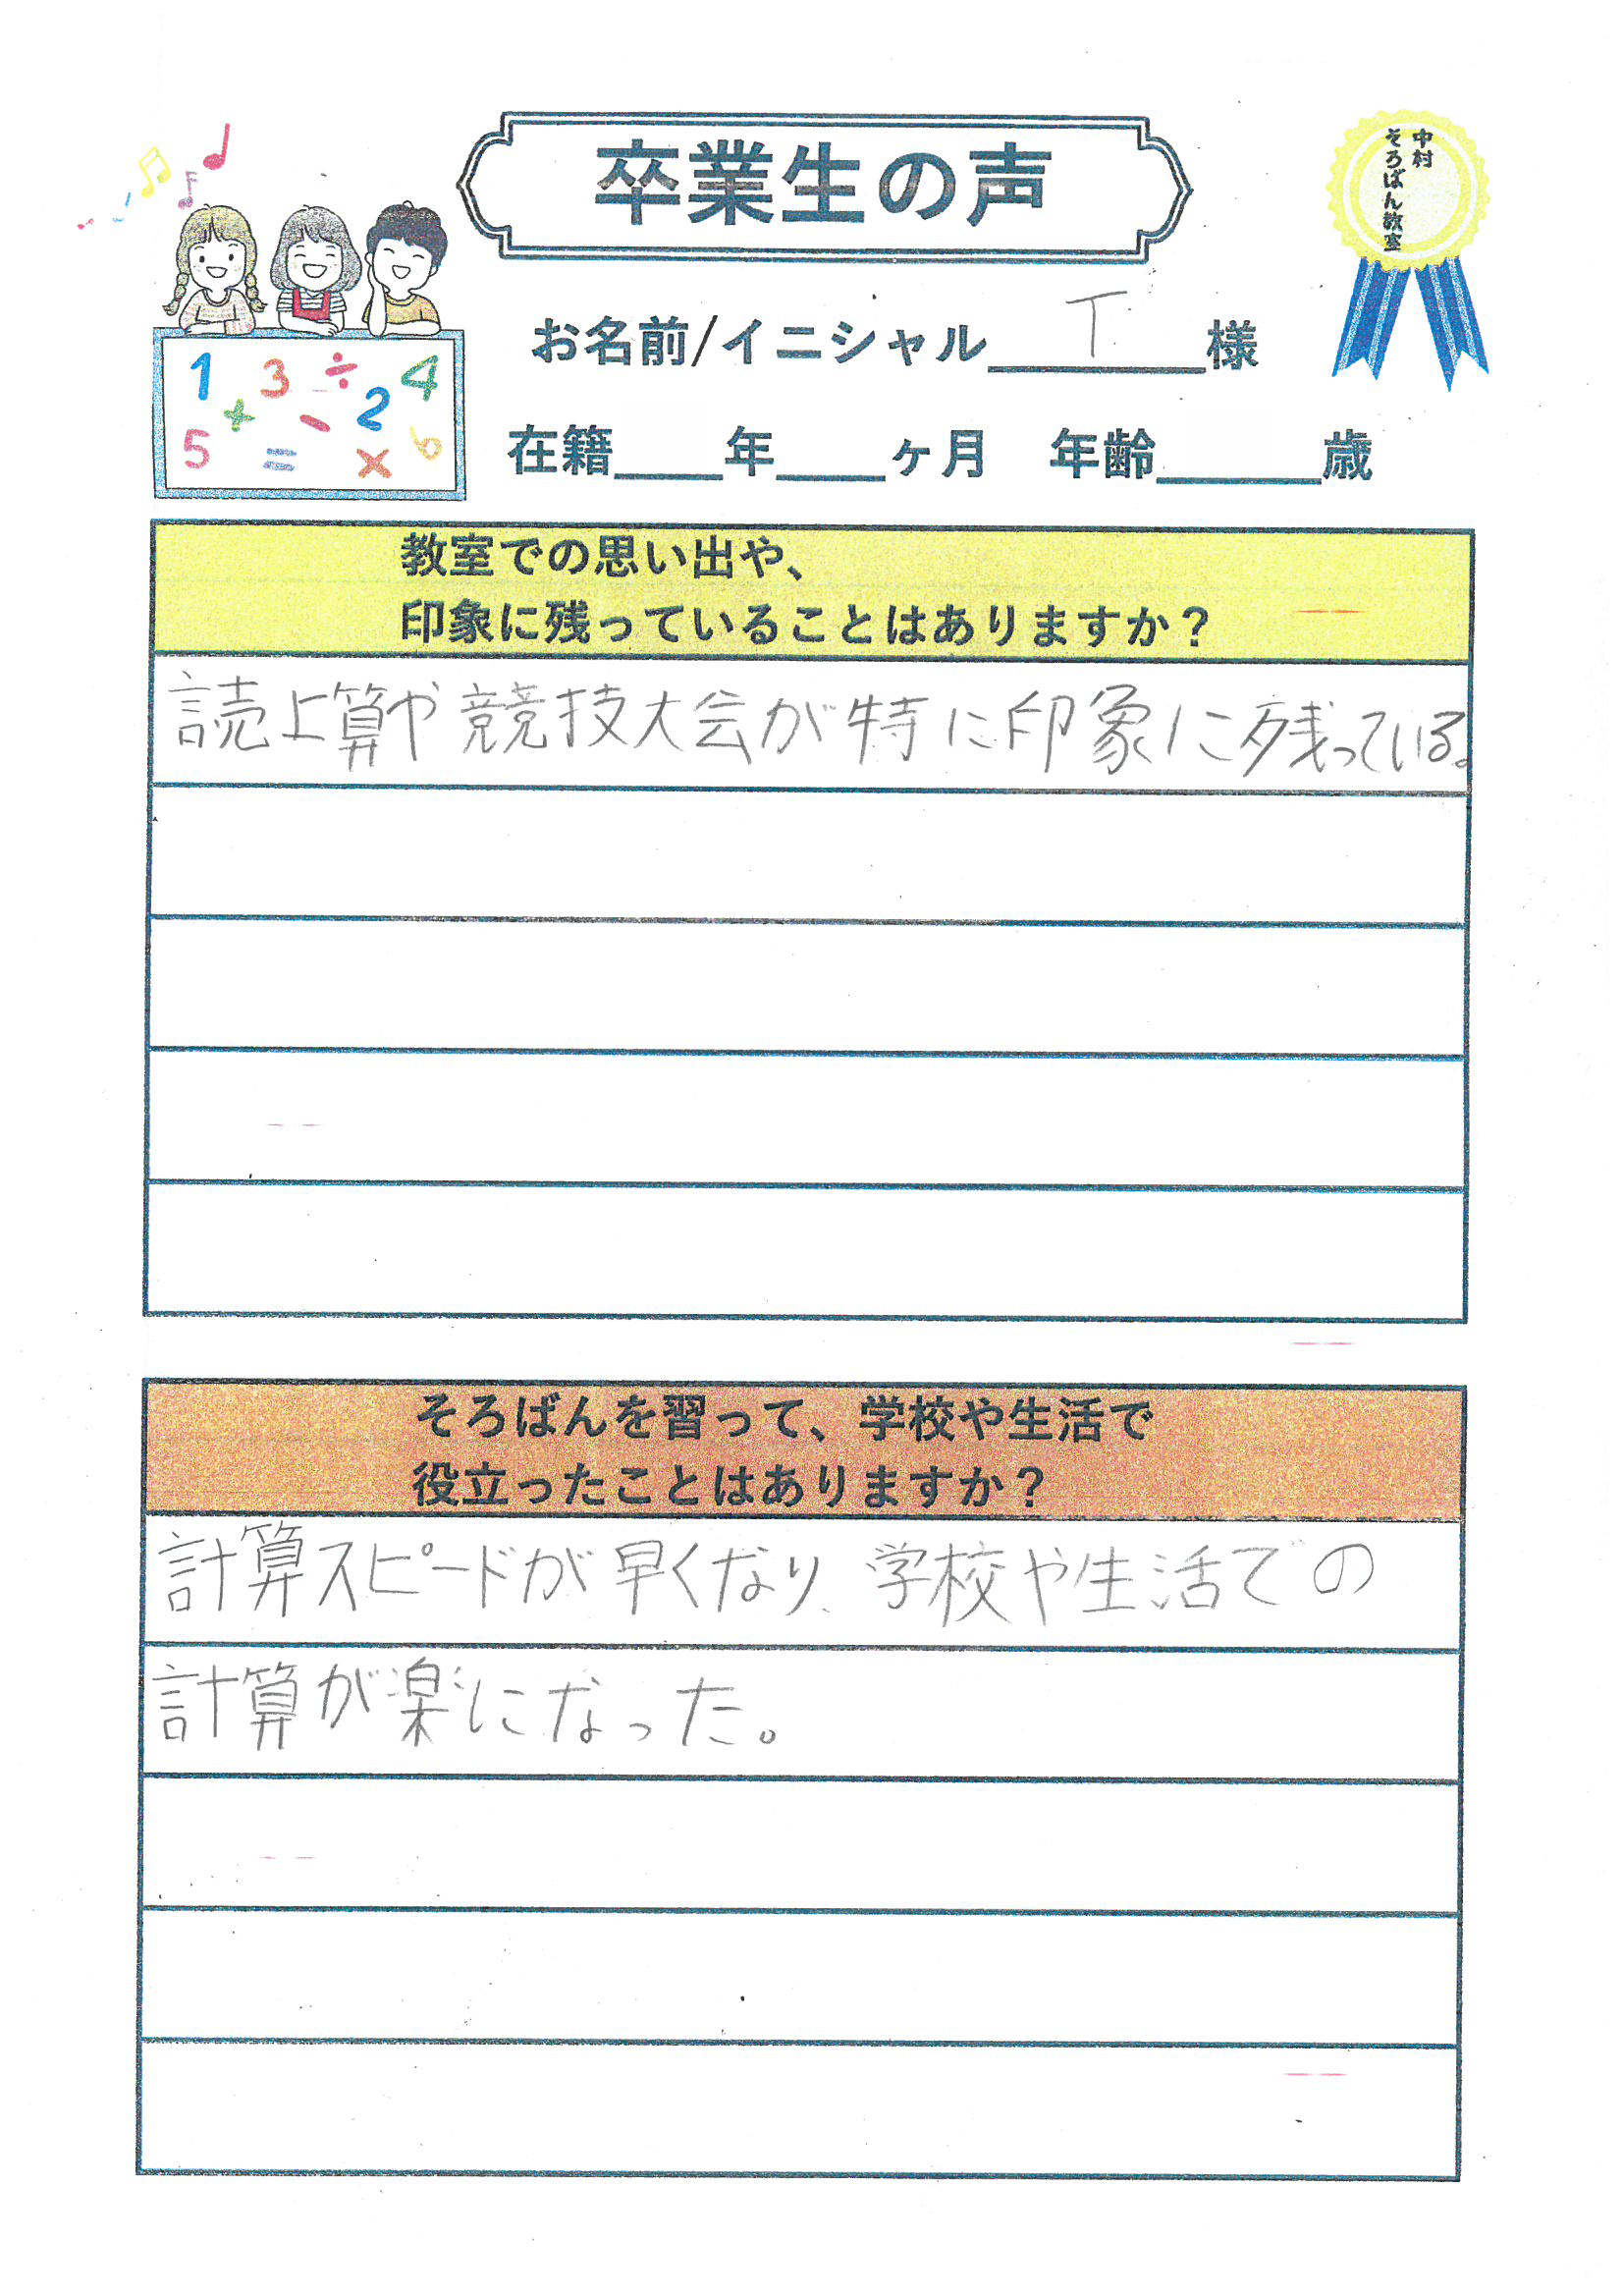 卒業生の声
中村
そろばん教室
お名前/イニシャル T. 様
在籍____年____ヶ月 年齢______歳
1 3 ÷ 4
+ - 2
5 = × 6
教室での思い出や、
印象に残っていることはありますか？
読上算や競技大会が特に印象に残っている。
そろばんを習って、学校や生活で
役立ったことはありますか？
計算スピードが早くなり、学校や生活での
計算が楽になった。